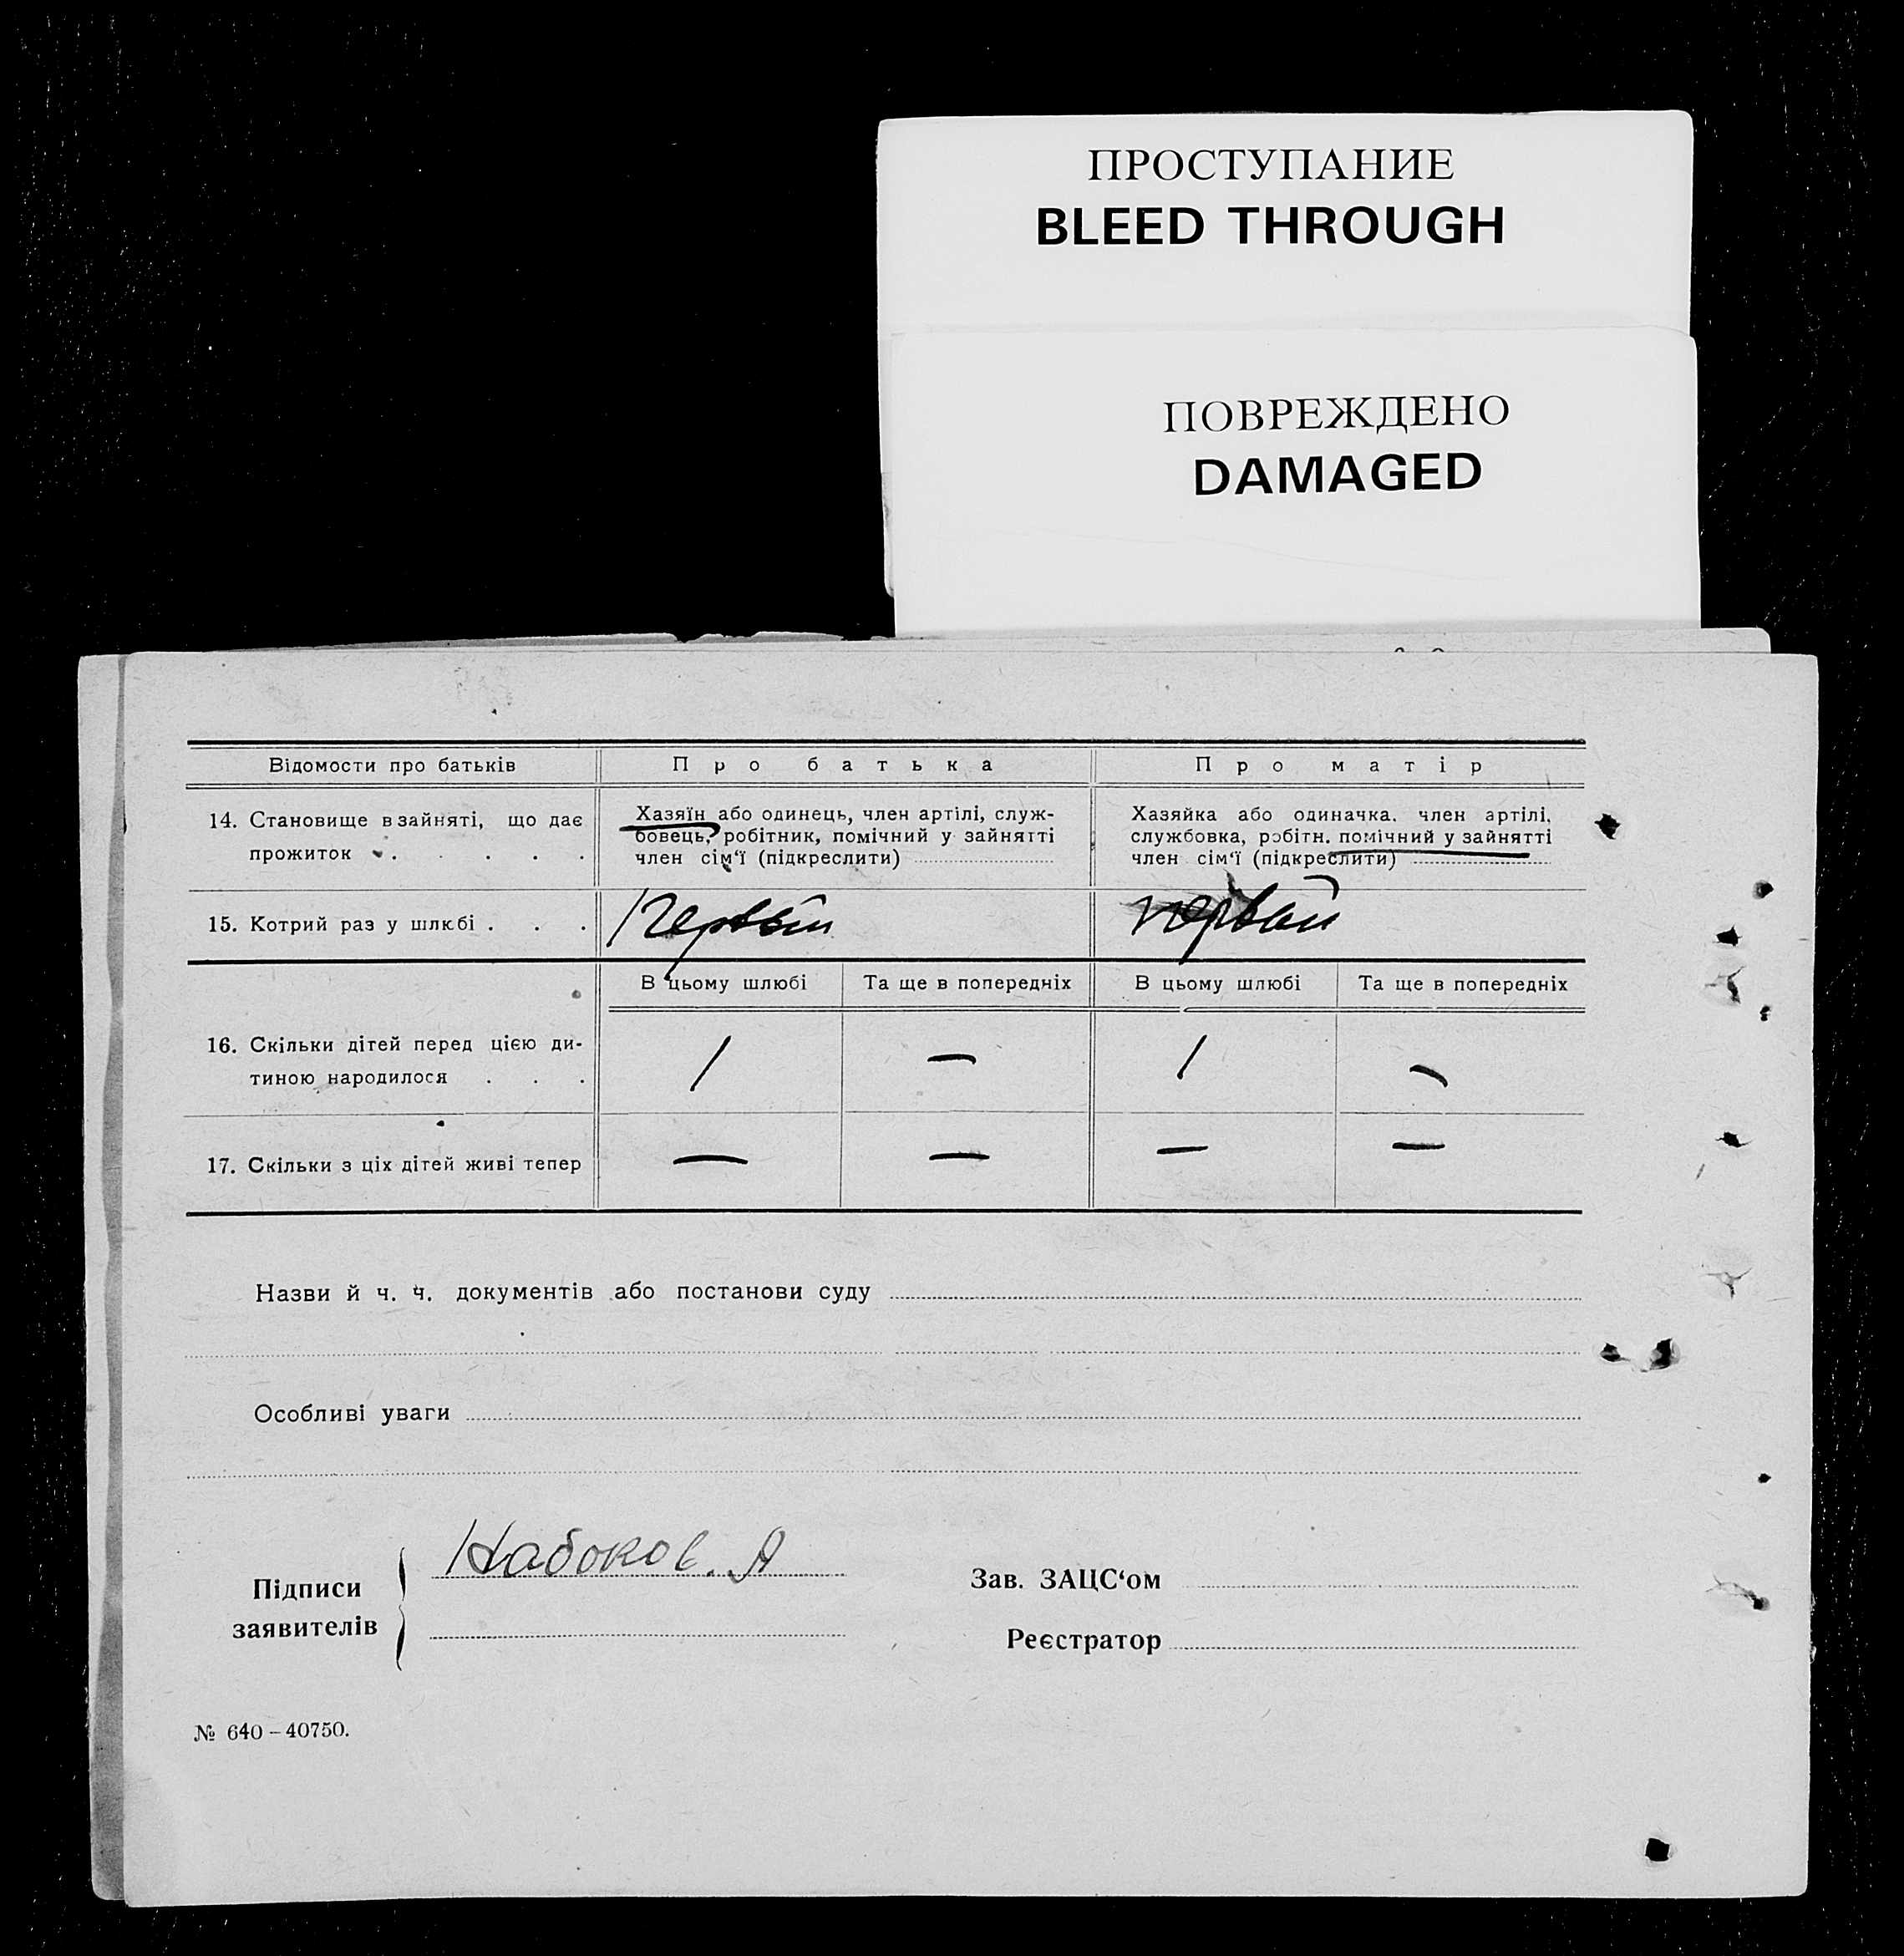 ПРОСТУПАНИЕ
BLEED THROUGH
ПОВРЕЖДЕНО
DAMAGED
Відомости про батьків Про батька Про матір
14. Становище в зайняті, що дає прожиток . . . . .
Хазяїн або одинець, член артілі, служ-
бовець, робітник, помічний у зайнятті
член сім‘ї (підкреслити)
Хазяйка або одиначка, член артілі,
службовка, робітн. помічний у зайнятті
член сім‘ї (підкреслити)
15. Котрий раз у шлюбі . . . Первый первый
В цьому шлюбі Та ще в попередніх В цьому шлюбі Та ще в попередніх
16. Скільки дітей перед цією ди-
тиною народилося . . . 1 — 1 —
17. Скільки з ціх дітей живі тепер — — — —
Назви й ч. ч. документів або постанови суду
Особливі уваги
Підписи
заявителів
Набоков. А
Зав. ЗАЦС‘ом
Реєстратор
№ 640 – 40750.